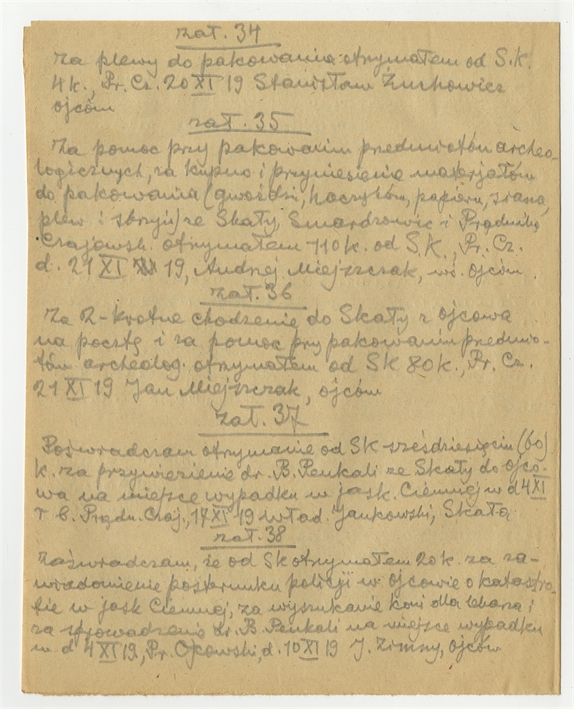 zał. 34
Za plewy do pakowania otrzymałem od S.K.
4 k., Pr. Cz. 20 XI 19 Stanisław Żuchowicz
Ojców
zał. 35
Za pomoc przy pakowaniu przedmiotów archeo-
logicznych, za kupno i przyniesienie materjałów
do pakowania (gwoździ, haczyków, papieru, siana,
plew i skrzyń) ze Skały, Smardzowic i Prądnika
Czajowsk. otrzymałem 110 k. od S.K., Pr. Cz.
d. 21 XI 19, Andrzej Miejszczak, wś. Ojców.
zał. 36
Za 2-krotne chodzenie do Skały z Ojcowa
na pocztę i za pomoc przy pakowaniu przedmio-
tów archeolog. otrzymałem od SK 80 k., Pr. Cz.
21 XI 19 Jan Miejszczak, Ojców
zał. 37
Poświadczam otrzymanie od SK sześćdziesięciu (60)
k. za przywiezienie dr. B. Penkali ze Skały do Ojco-
wa na miejsce wypadku w jask. Ciemnej w d 4 XI
r b. Prądn. Czaj., 17 XI 19 Wład. Jankowski, Skała
zał. 38
Zaświadczam, że od SK otrzymałem 20 k. za za-
wiadomienie posterunku policji w Ojcowie o katastro-
fie w jask Ciemnej, za wyszukanie koni dla lekarza i
za sprowadzenie dr. B. Penkali na miejsce wypadku
w d 4 XI 19, Pr. d. 10 XI 19 J. Zimny, Ojców